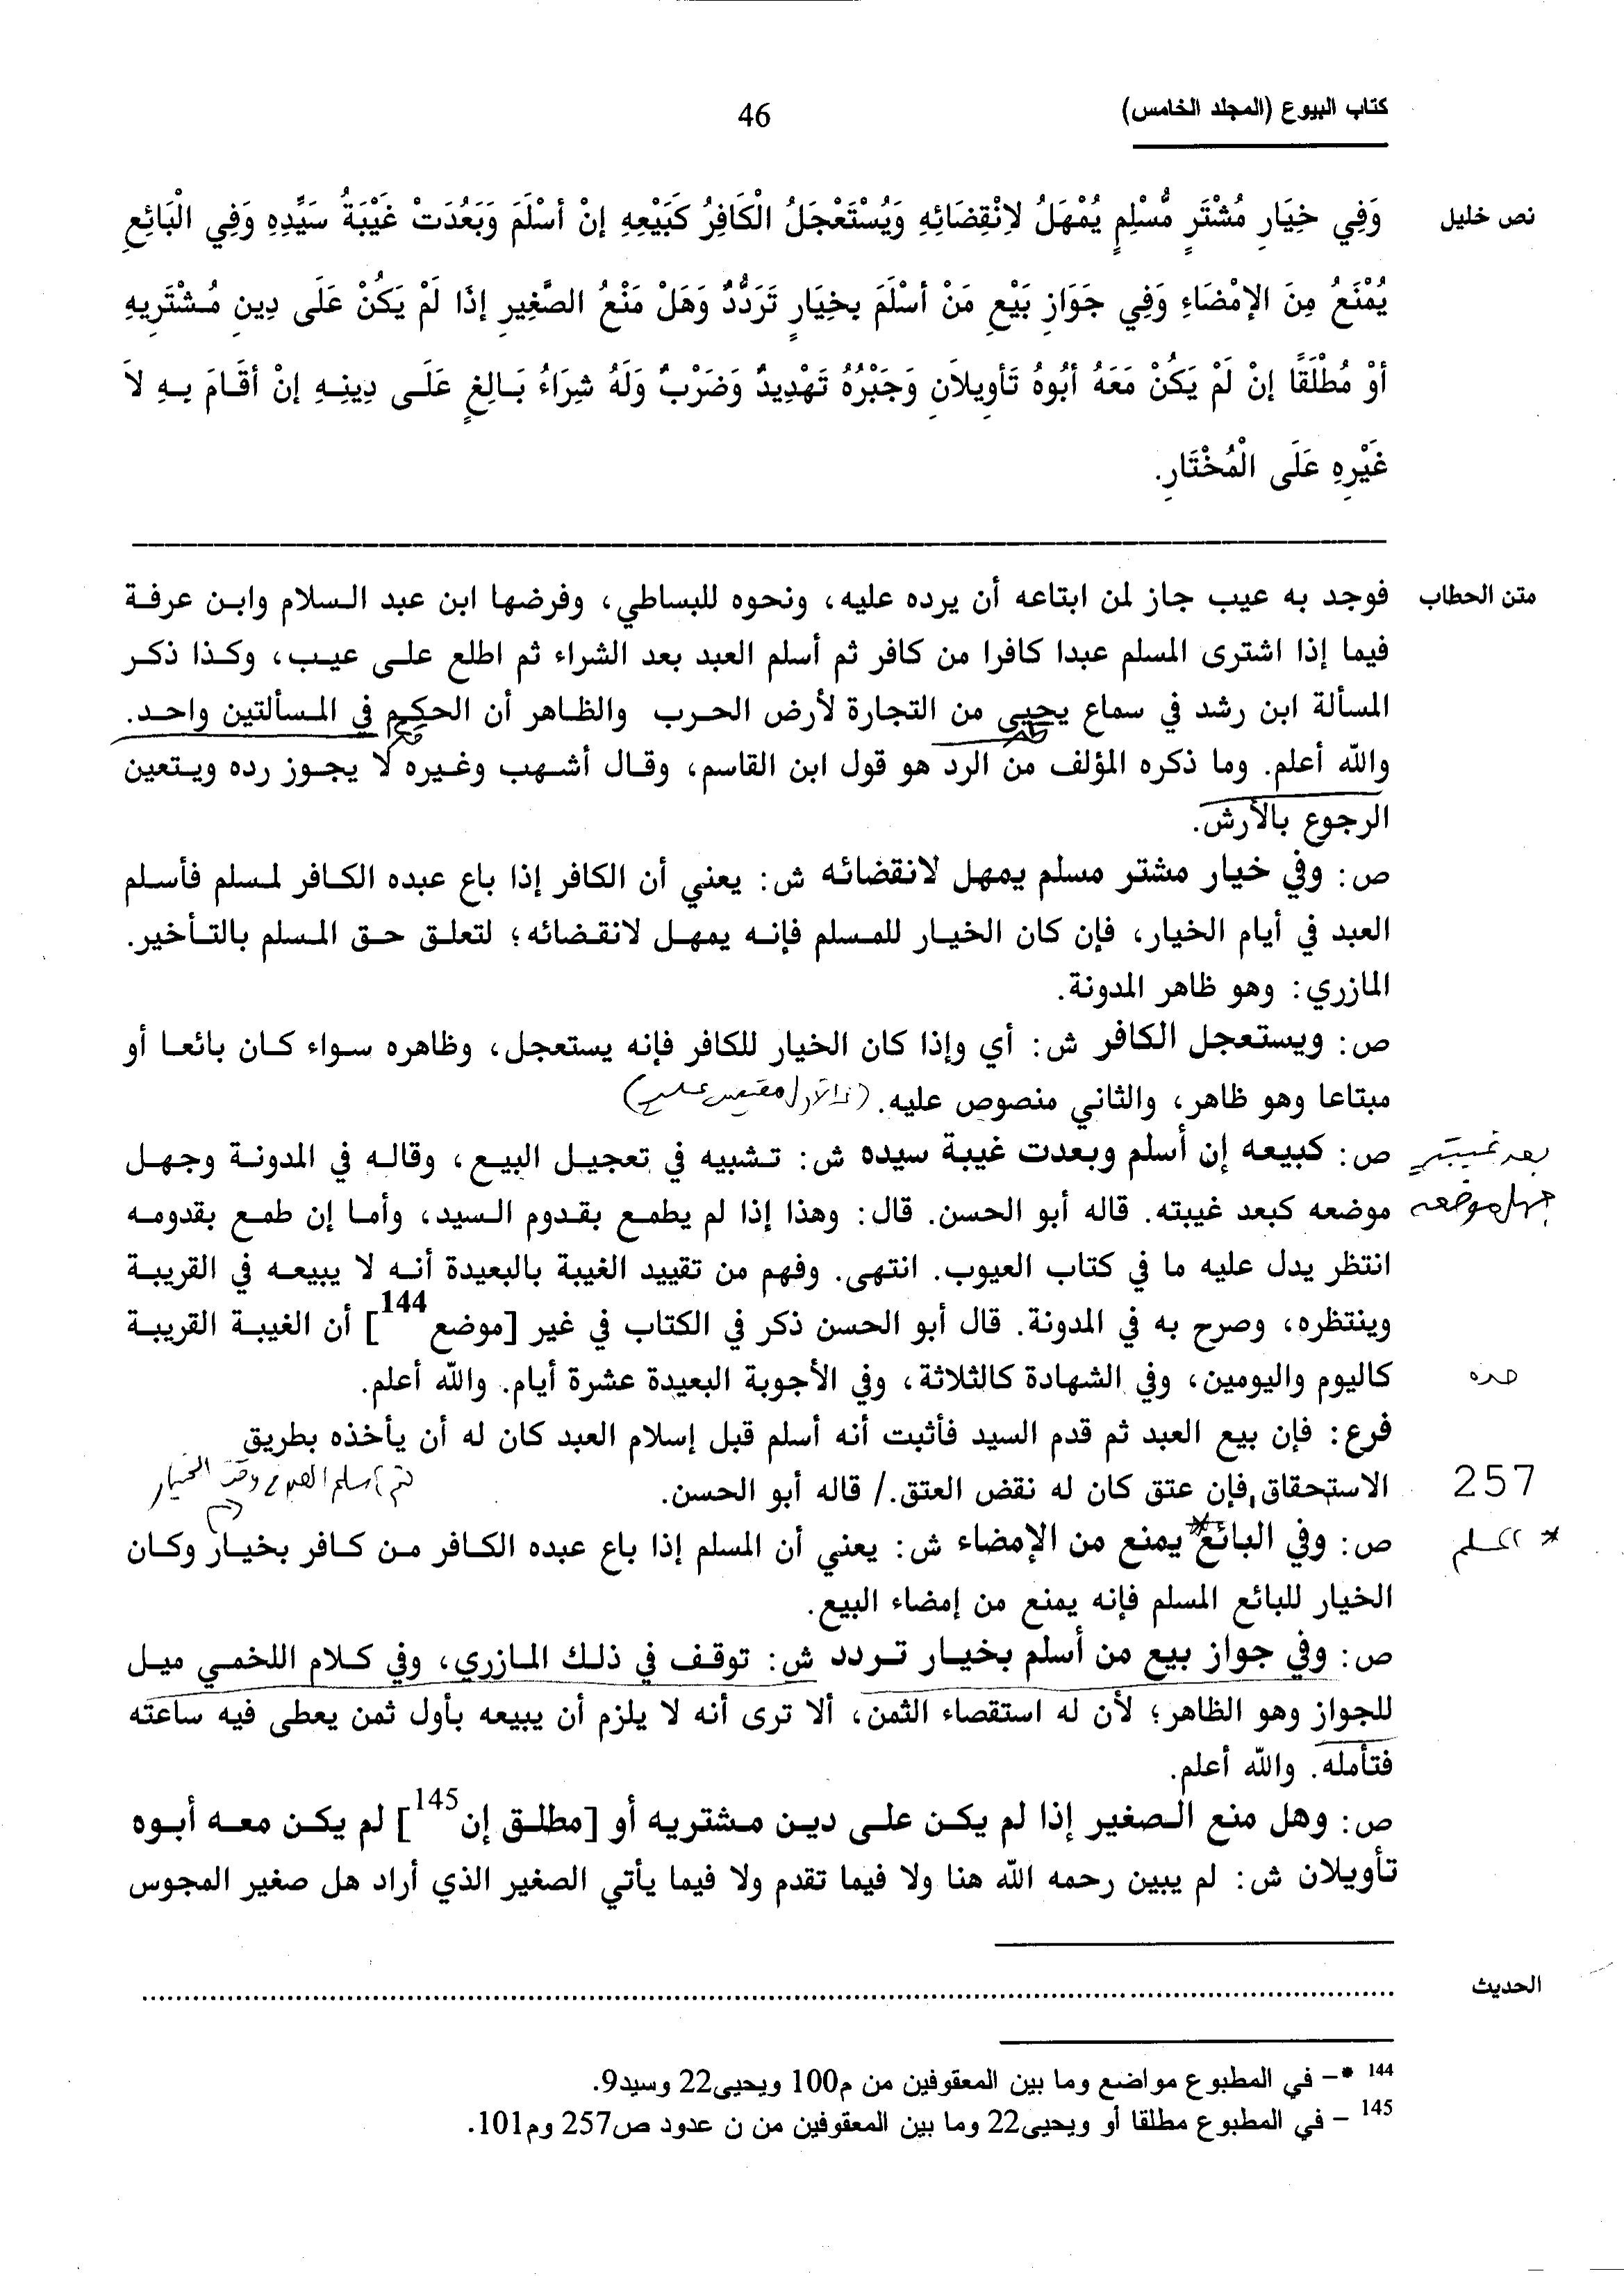 كتاب البيوع (المجلد الخامس)
46
نص خليل
وَفِي خِيَارِ مُشْتَرٍ مُّسْلِمٍ يُمْهَلُ لاِنْقِضَائِهِ وَيُسْتَعْجَلُ الْكَافِرُ كَبَيْعِهِ إِنْ أَسْلَمَ وَبَعُدَتْ غَيْبَةُ سَيِّدِهِ وَفِي الْبَائِعِ
يُمْنَعُ مِنَ الإِمْضَاءِ وَفِي جَوَازِ بَيْعِ مَنْ أَسْلَمَ بِخِيَارٍ تَرَدُّدٌ وَهَلْ مَنْعُ الصَّغِيرِ إِذَا لَمْ يَكُنْ عَلَى دِينِ مُشْتَرِيهِ
أَوْ مُطْلَقًا إِنْ لَمْ يَكُنْ مَعَهُ أَبُوهُ تَأْوِيلاَنِ وَجَبْرُهُ تَهْدِيدٌ وَضَرْبٌ وَلَهُ شِرَاءُ بَالِغٍ عَلَى دِينِهِ إِنْ أَقَامَ بِهِ لاَ
غَيْرِهِ عَلَى الْمُخْتَارِ.
متن الحطاب
فوجد به عيب جاز لمن ابتاعه أن يرده عليه، ونحوه للبساطي، وفرضها ابن عبد السلام وابن عرفة
فيما إذا اشترى المسلم عبدا كافرا من كافر ثم أسلم العبد بعد الشراء ثم اطلع على عيب، وكذا ذكر
المسألة ابن رشد في سماع يحيى من التجارة لأرض الحرب والظاهر أن الحكم في المسألتين واحد.
والله أعلم. وما ذكره المؤلف من الرد هو قول ابن القاسم، وقال أشهب وغيره لا يجوز رده ويتعين
الرجوع بالأرش.
ص: وفي خيار مشتر مسلم يمهل لانقضائه ش: يعني أن الكافر إذا باع عبده الكافر لمسلم فأسلم
العبد في أيام الخيار، فإن كان الخيار للمسلم فإنه يمهل لانقضائه؛ لتعلق حق المسلم بالتأخير.
المازري: وهو ظاهر المدونة.
ص: ويستعجل الكافر ش: أي وإذا كان الخيار للكافر فإنه يستعجل، وظاهره سواء كان بائعا أو
مبتاعا وهو ظاهر، والثاني منصوص عليه.
ص: كبيعه إن أسلم وبعدت غيبة سيده ش: تشبيه في تعجيل البيع، وقاله في المدونة وجهل
بعد غيبته
موضعه كبعد غيبته. قاله أبو الحسن. قال: وهذا إذا لم يطمع بقدوم السيد، وأما إن طمع بقدومه
جهل موضعه
انتظر يدل عليه ما في كتاب العيوب. انتهى. وفهم من تقييد الغيبة بالبعيدة أنه لا يبيعه في القريبة
وينتظره، وصرح به في المدونة. قال أبو الحسن ذكر في الكتاب في غير [موضع144] أن الغيبة القريبة
كاليوم واليومين، وفي الشهادة كالثلاثة، وفي الأجوبة البعيدة عشرة أيام. والله أعلم.
فرع: فإن بيع العبد ثم قدم السيد فأثبت أنه أسلم قبل إسلام العبد كان له أن يأخذه بطريق
257
الاستحقاق, فإن عتق كان له نقض العتق./ قاله أبو الحسن.
ثم أسلم العبد وقت الخيار
ص: وفي البائع* يمنع من الإمضاء ش: يعني أن المسلم إذا باع عبده الكافر من كافر بخيار وكان
* المسلم
الخيار للبائع المسلم فإنه يمنع من إمضاء البيع.
ص: وفي جواز بيع من أسلم بخيار تردد ش: توقف في ذلك المازري، وفي كلام اللخمي ميل
للجواز وهو الظاهر؛ لأن له استقصاء الثمن، ألا ترى أنه لا يلزم أن يبيعه بأول ثمن يعطى فيه ساعته
فتأمله. والله أعلم.
ص: وهل منع الصغير إذا لم يكن على دين مشتريه أو [مطلق إن145] لم يكن معه أبوه
تأويلان ش: لم يبين رحمه الله هنا ولا فيما تقدم ولا فيما يأتي الصغير الذي أراد هل صغير المجوس
الحديث
144 *– في المطبوع مواضع وما بين المعقوفين من م100 ويحيى22 وسيد9.
145 – في المطبوع مطلقا أو ويحيى22 وما بين المعقوفين من ن عدود ص257 وم101.